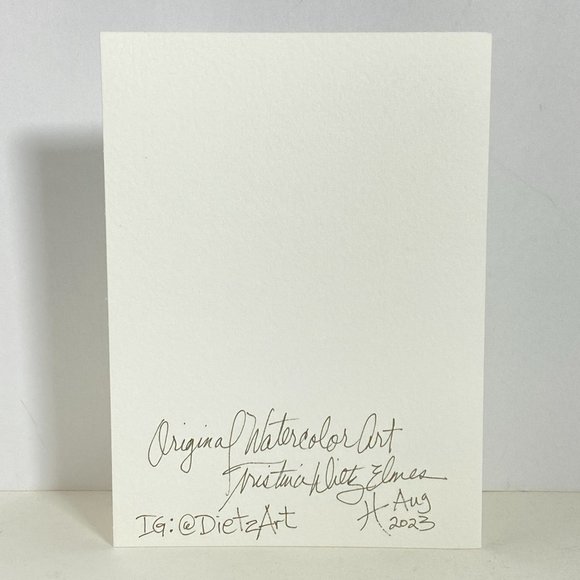 Original Watercolor Art
Tristina Dietz Elmes
IG: @DietzArt
Aug
2023